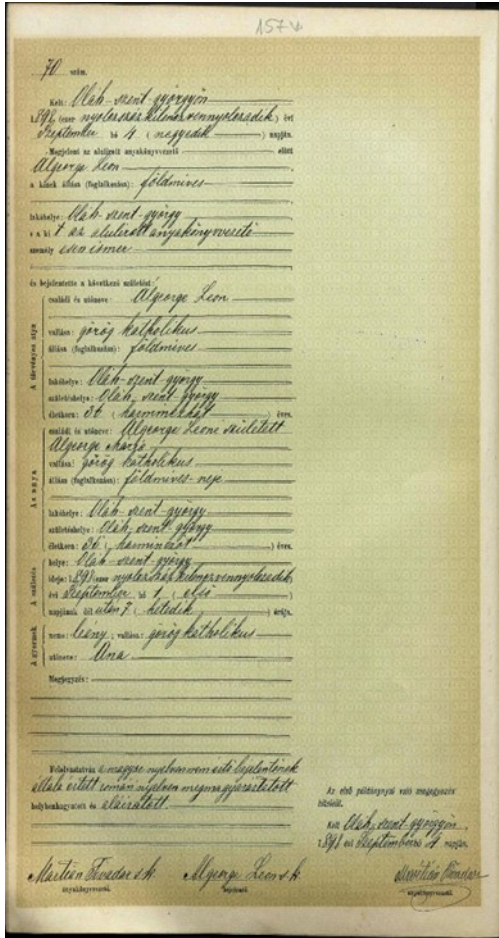 157 v
70 szám.
Kelt: Oláh-szent-györgyön
1,898 (ezer nyolczszáz kilenczvennyolczadik) évi
Szeptember hó 4 (negyedik) napján.
Megjelent az alulirott anyakönyvvezető előtt
Algeorge Leon
a kinek állása (foglalkozása): földmives
lakóhelye: Oláh-szent-györgy
s a kit az alulirott anyakönyvvezető
személyesen ismer
és bejelentette a következő születést:
A törvényes atya
családi és utóneve: Algeorge Leon
vallása: görög katholikus
állása (foglalkozása): földmives
lakóhelye: Oláh-szent-györgy
születéshelye: Oláh-szent-györgy
életkora: 36 (harminczhat) éves.
Az anya
családi és utóneve: Algeorge Leone született
Algeorge
vallása: görög katholikus
állása (foglalkozása): földmives neje
lakóhelye: Oláh-szent-györgy
születéshelye: Oláh-szent-györgy
életkora: (harmincz) éves.
A születés
helye: Oláh-szent-györgy
ideje: 1,898 ezer nyolczszáz kilenczvennyolczadik
évi Szeptember hó 1 (első)
napjának dél után 7 (hetedik) órája.
A gyermek
neme: leány; vallása: görög katholikus
utóneve: Ana
Megjegyzés:
Felolvastatván a magyar nyelven nem értő bejelentőnek
általa értett román nyelven megmagyaráztatott
helybenhagyatott és aláiratott.
Az első példánynyal való megegyezés
hiteléül.
Kelt Oláh-szent-györgyön
1,898 évi Szeptember hó 4 napján.
Marțian Tivadar s.k. Algeorge Leon s.k. Marțian Tivadar
anyakönyvvezető. bejelentő. anyakönyvvezető.